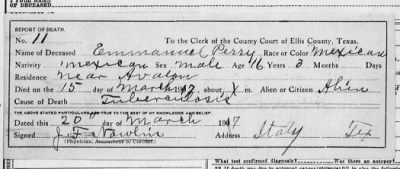 OF DECEASED
REPORT OF DEATH.
No. 11 To the Clerk of the County Court of Ellis County, Texas.
Name of Deceased Emmanuel Perry Race or Color Mexican
Nativity Mexican Sex Male Age 16 Years 3 Months Days
Residence near Avalon
Died on the 15 day of March 1917, about X m. Alien or Citizen Alien
Cause of Death Tuberculosis
THE ABOVE STATED PARTICULARS ARE TRUE TO THE BEST OF MY KNOWLEDGE AND BELIEF.
Dated this 20" day of March 1917
Signed J. F. Nowlin Address Italy Tex
(Physician, Assurance or Coroner.)
What test confirmed diagnosis? Was there an autopsy?